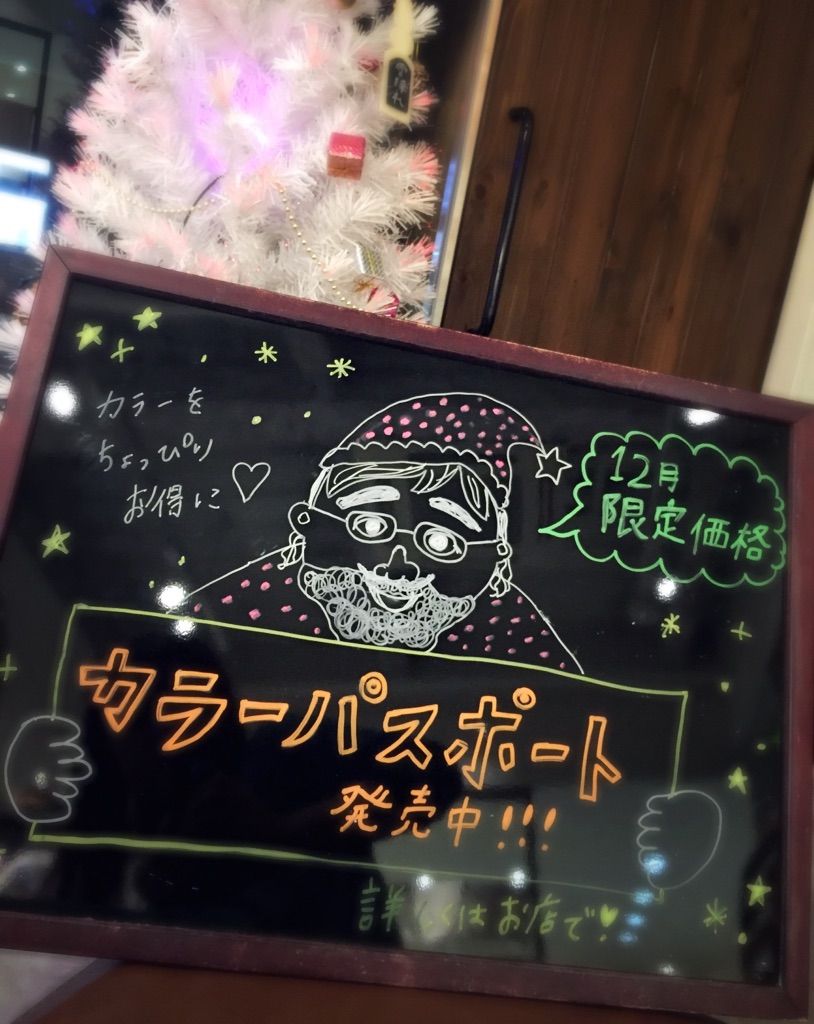 カラーを
ちょっぴり
お得に
12月
限定価格
カラーパスポート
発売中!!!
詳しくはお店で